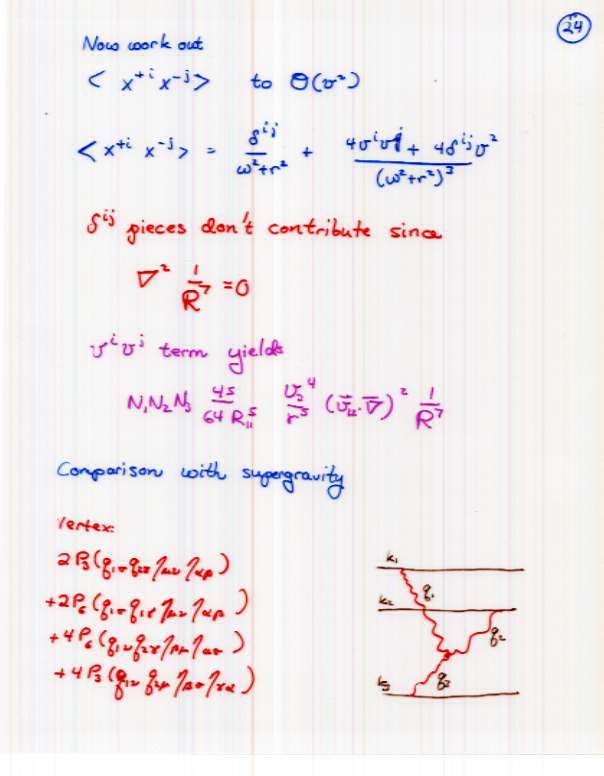 24
Now work out
< x⁺ⁱ x⁻ʲ > to O(v²)
< x⁺ⁱ x⁻ʲ > = δⁱʲ / (ω²+r²) + (4vⁱvʲ + 4δⁱʲv²) / (ω²+r²)³
δⁱʲ pieces don't contribute since
∇² 1/R⁷ = 0
vⁱvʲ term yields
N₁N₂N₃ 45/(64 R₁₁⁵) v₃⁴/r⁵ (v⃗ · ∇⃗)² 1/R⁷
Comparison with supergravity
Vertex:
2P₃(q₁σ q₂γ η_μν η_αβ)
+2P₆(q₁σ q₁γ η_μν η_αβ)
+4P₆(q₁ν q₂γ η_βμ η_ασ)
+4P₃(q₁ν q₂μ η_βσ η_γα)
k₁
q₁
k₂
q₂
k₃
q₃